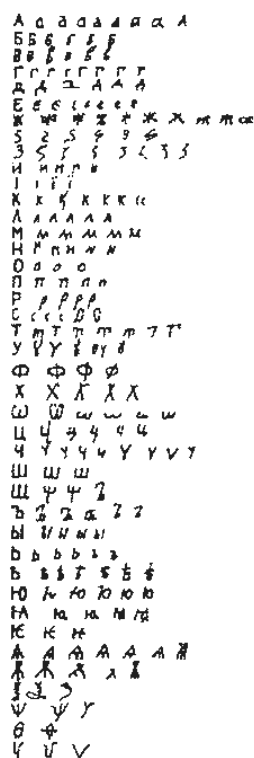 А а а а а а а А
Б Б Б Б Б Б
В В В В В
Г Г Г Г Г Г Г Г
Д Д Д Д Д Д
Е Е Е Е Е Е Е Е
Ж Ж Ж Ж Ж Ж ж ж ж
Ѕ Ѕ Ѕ Ѕ Ѕ Ѕ
З З З З З З З З
И И И И И
І І Ї Ї
К К К К К К К
Л Л Л Л Л Л
М М М М М М
Н Н Н Н Н Н
О о о о
П П П П П
Р Р Р Р Р
С С С С С С
Т т Т Т т Т Т
У У У У У У
Ф Ф Ф Ф
Х Х Х Х Х
Ѡ Ѡ Ѡ Ѡ Ѡ Ѡ
Ц Ц Ц Ц Ц
Ч Ч Ч Ч Ч Ч Ч Ч Ч
Ш Ш Ш
Щ Щ Щ Щ
Ъ Ъ Ъ Ъ Ъ Ъ
Ы Ы Ы Ы Ы
Ь Ь Ь Ь Ь Ь
Ѣ Ѣ Ѣ Ѣ Ѣ Ѣ Ѣ
Ю Ю Ю Ю Ю Ю
Ꙗ Ꙗ Ꙗ Ꙗ Ꙗ
Ѥ Ѥ Ѥ
Ѧ Ѧ Ѧ Ѧ Ѧ Ѧ Ѧ
Ѫ Ѫ Ѫ Ѫ Ѫ
Ѯ Ѯ Ѯ
Ѱ Ѱ Ѱ
Ѳ Ѳ
Ѵ Ѵ Ѵ